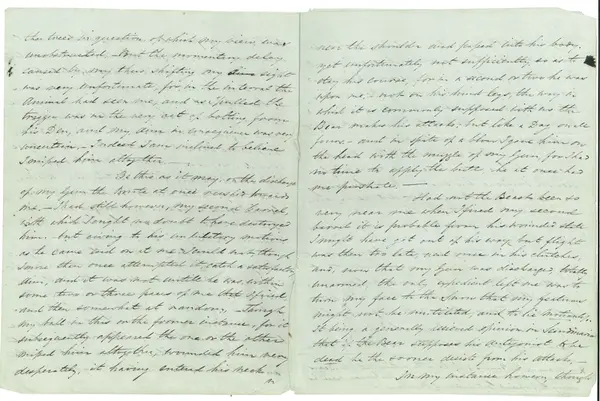 the tree in question of which my view was
unobstructed. But the momentary delay
caused by my thus shifting my sight
was very unfortunate, for in the interval the
Animal had seen me, and as I pulled the
trigger was in the very act of bolting from
his Den, and my aim in consequence was very
uncertain. Indeed I am inclined to believe
I missed him altogether.
Be this as it may, on the discharge
of my Gun the Brute at once rushed towards
me. I had still however, my second barrel,
with which I ought no doubt to have destroyed
him, but owing to his undulatory motions
as he came end on at me I could not, though
I more than once attempted it, catch a satisfactory
Aim, and it was not until he was within
some two or three paces of me that I fired,
and then somewhat at random. Though
my ball in this or the former instance, for it
subsequently appeared the one or the other
missed him altogether, wounded him very
desperately, it having entered his neck
near the shoulder and passed into his body,
yet unfortunately not sufficiently so as to
stay his course, for in a second or two he was
upon me; not on his hind legs, the way in
which it is commonly supposed with us the
Bear makes his attacks; but like a Dog on all
fours; and in spite of a blow I gave him on
the head with the muzzle of my Gun, for I had
no time to apply the butt, he at once laid
me prostrate.
Had not the Beast been so
very near me when I fired my second
barrel it is probable from his wounded state
I might have got out of his way but flight
was then too late, and once in his clutches,
and, now that my Gun was discharged, totally
unarmed, the only expedient left me was to
turn my face to the Snow that my features
might not be mutilated, and to lie motionless,
It being a generally received opinion in Scandinavia
that if the Bear supposes his Antagonist to be
dead he the sooner desists from his attacks,
In my instance however, though